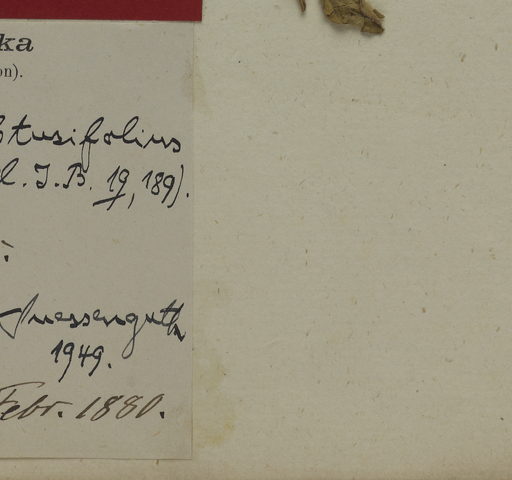 ka
on).
btusifolius
l. I. B. 19, 189).
Suessenguth
1949.
Febr. 1880.